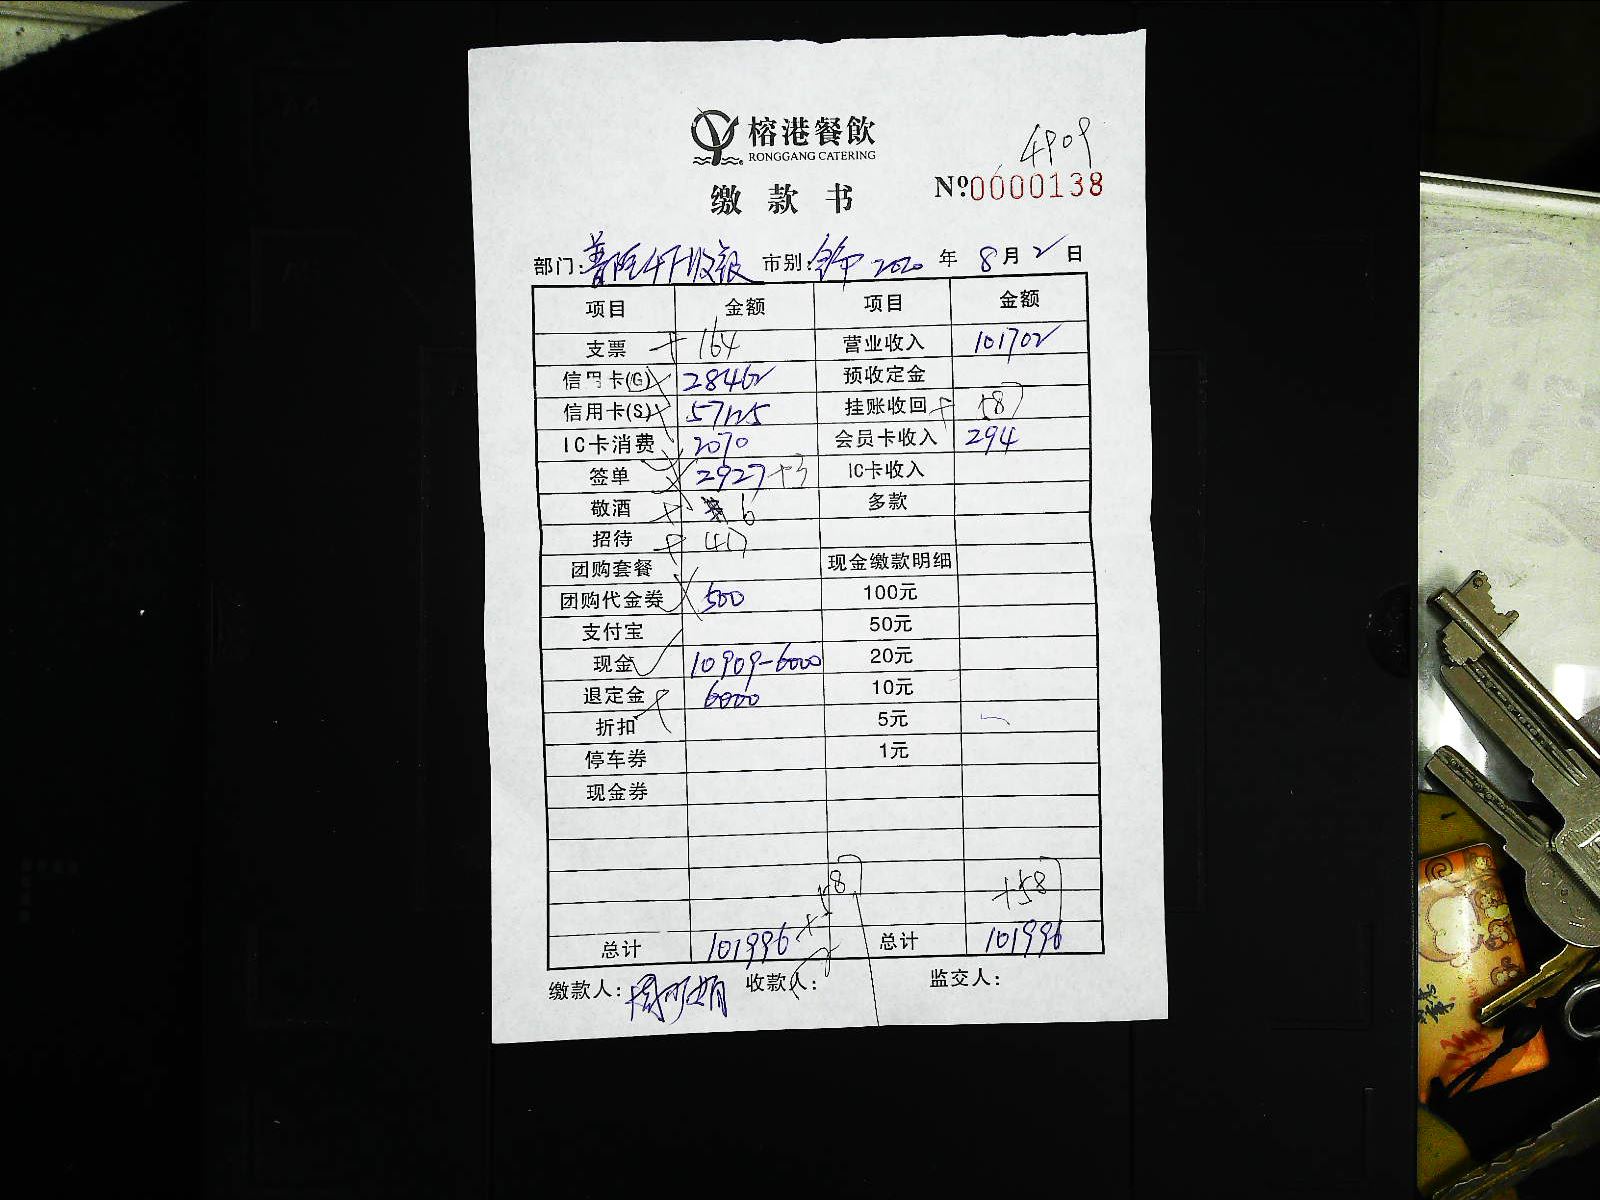 榕港餐飲
RONGGANG CATERING
4909
缴款书
Nº0000138
部门: 收银 市别: 2020 年 8月2日
项目 金额 项目 金额
支票 + 164 营业收入 101702
信用卡(G) 28462 预收定金
信用卡(S) 57125 挂账收回 + 58
IC卡消费 2070 会员卡收入 294
签单 2927+3 IC卡收入
敬酒 + 6 多款
招待 + 417
团购套餐 现金缴款明细
团购代金券 500 100元
支付宝 50元
现金 10909-6000 20元
退定金 6000 10元
折扣 5元
停车券 1元
现金券
58 +58
总计 101996 + 总计 101996
缴款人: 收款人: 监交人: